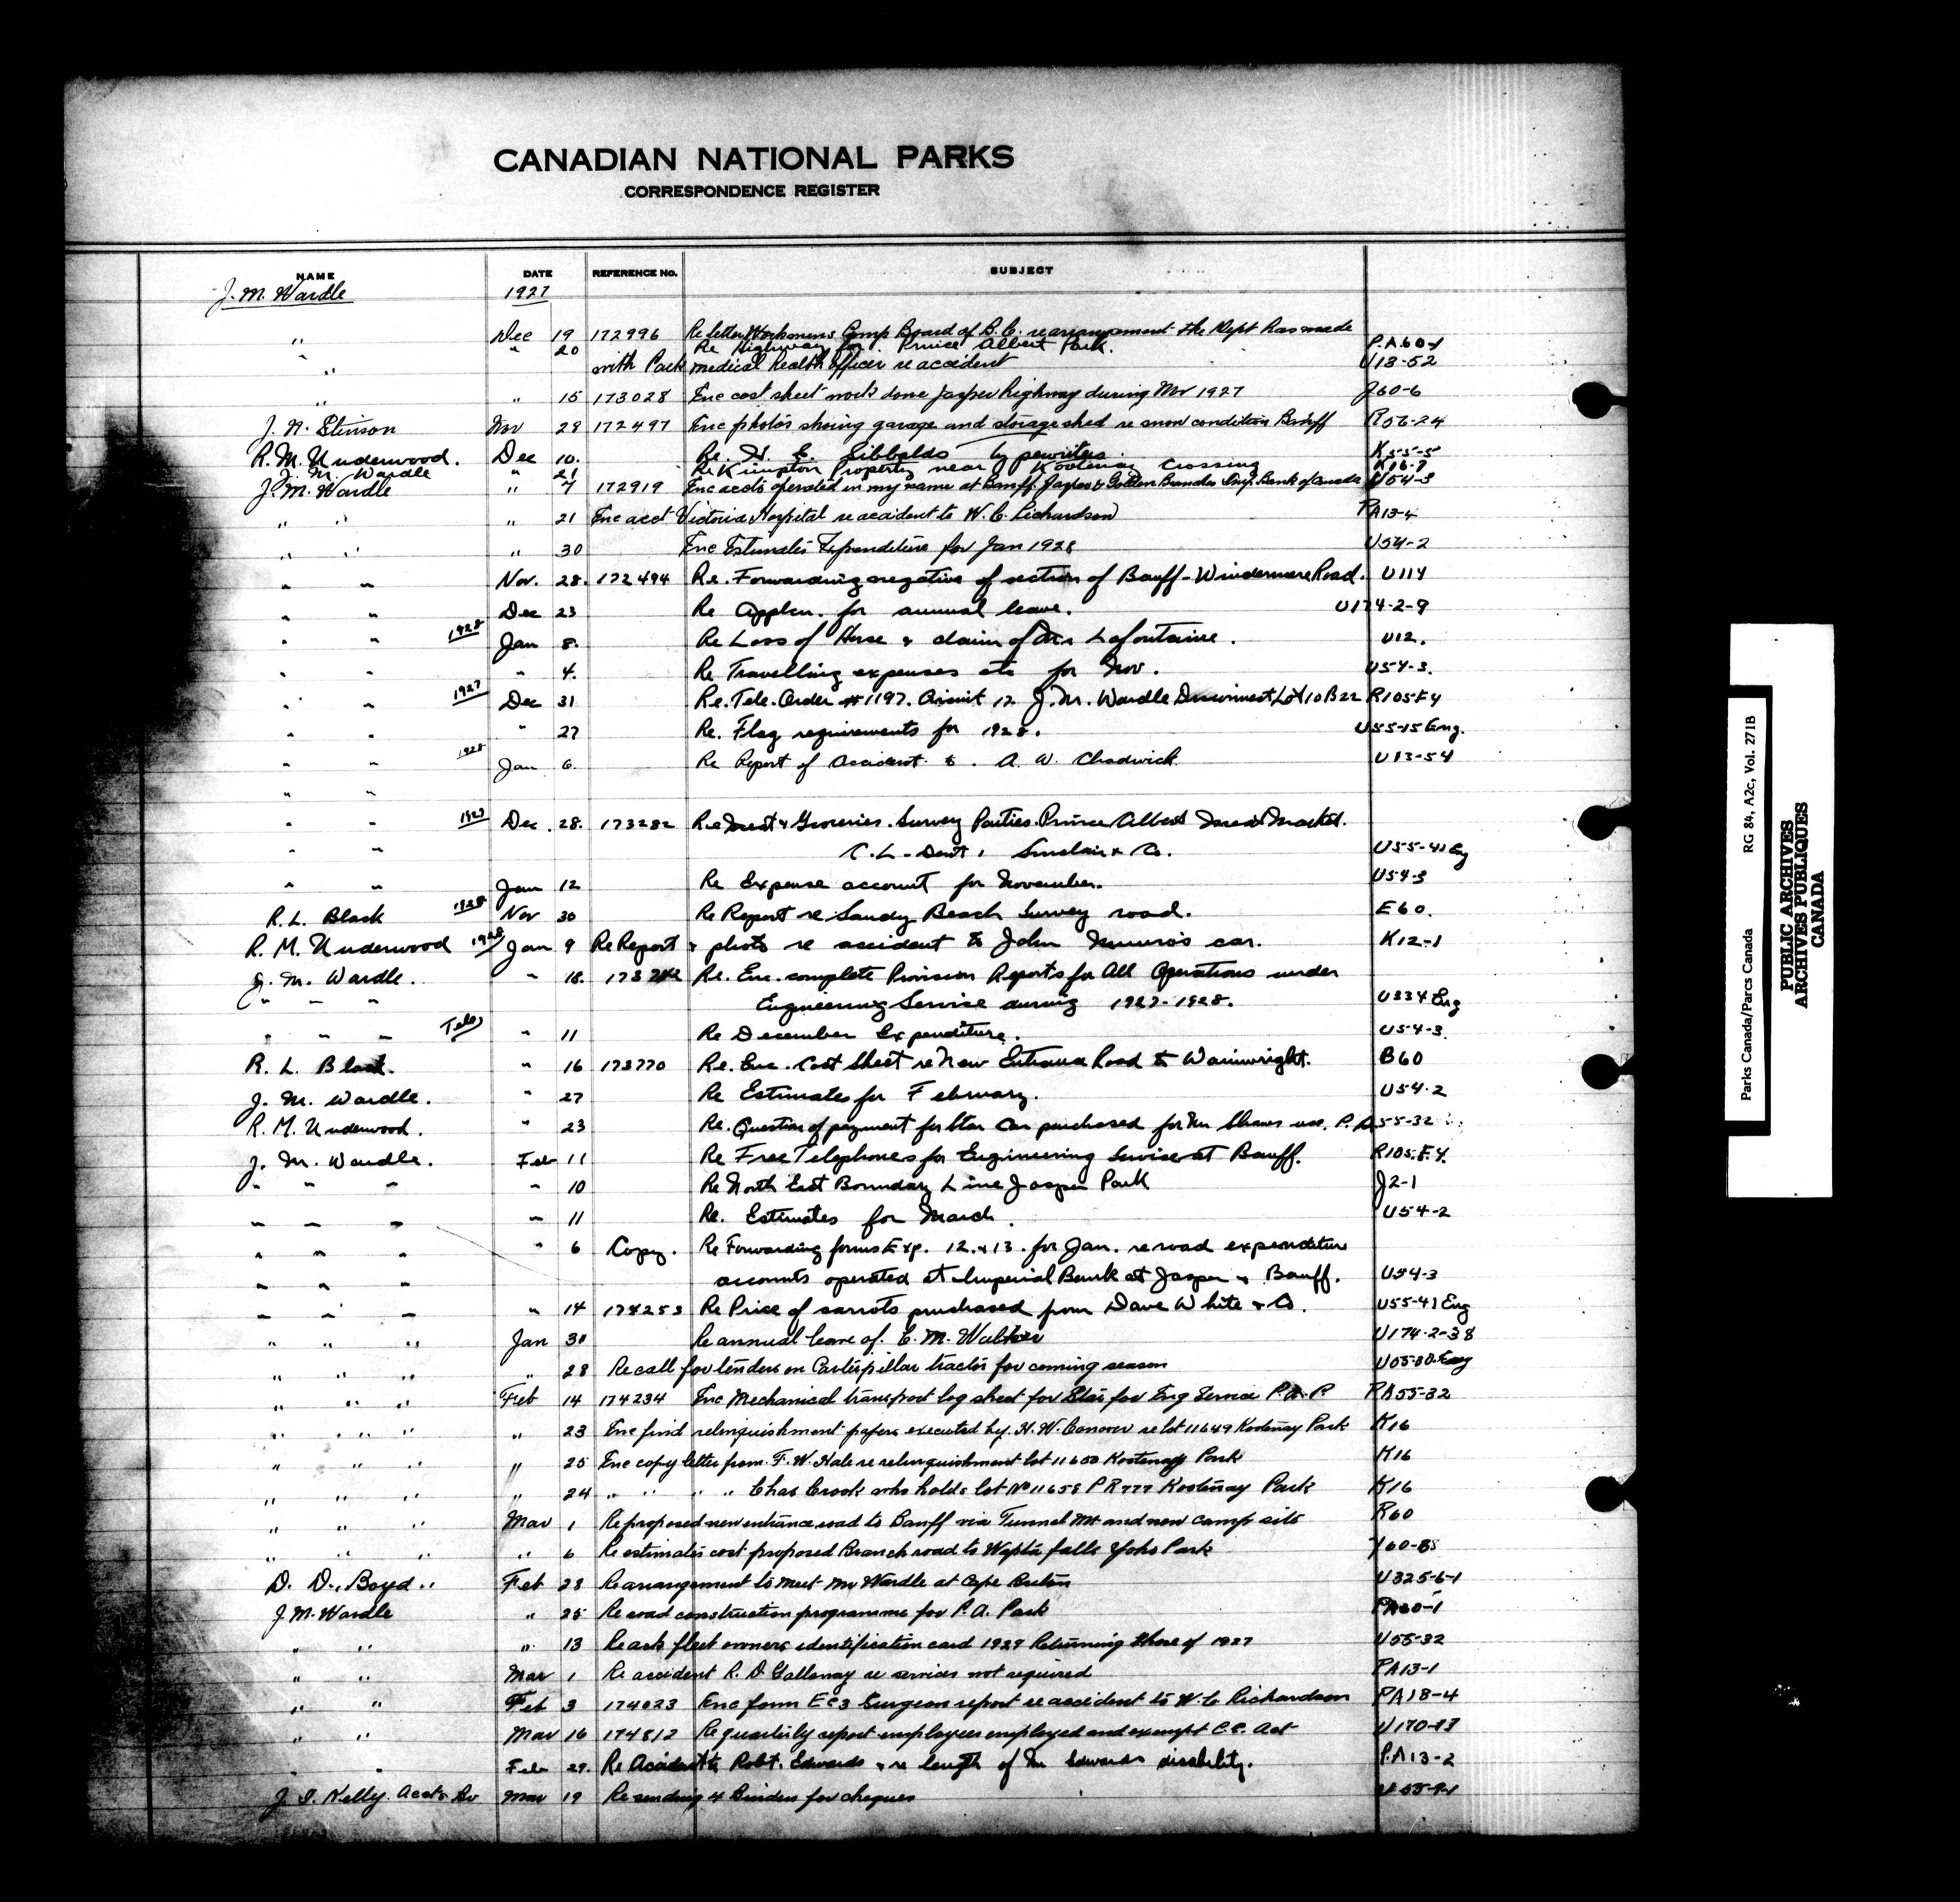 CANADIAN NATIONAL PARKS
CORRESPONDENCE REGISTER
NAME DATE REFERENCE No. SUBJECT
J. M. Wardle 1927
" Dec 19 172996 Re letter Workmens Comp Board of B.C. re arrangement the Dept has made
" " 20 Re Highway for Prince Albert Park. P.A60-1
" with Park medical health officer re accident U13-52
" " 15 173028 Enc cost sheet work done Jasper highway during Nov 1927 J60-6
J. N. Stinson Nov 29 172497 Enc photos shoing garage and storage shed re snow condition Banff R56-24
R. M. Underwood. Dec 10. Re. H. E. Sibbalds typewriter. K55-5
J. M. Wardle " 21 Re Kimpton Property near Kootenay Crossing K16-7
J. M. Wardle " 7 172919 Enc accts operated in my name at Banff Jasper & Golden Branches Imp. Bank of Canada U54-3
" " " 21 Enc acct Victoria Hospital re accident to W. C. Richardson PA13-4
" " " 30 Enc Estimates Expenditure for Jan 1928 U54-2
" " Nov. 28. 172494 Re. Forwarding negative of section of Banff-Windermere Road. U114
" " Dec 23 Re Applcn. for annual leave. U174-2-9
" " 1928 Jan 8. Re Loss of Horse & claim of Mr Lafontaine. U12.
" " " 4. Re Travelling expenses etc for Nov. U54-3.
" " 1927 Dec 31 Re. Tele. Order # 1197. Circuit 17 J. M. Wardle Disconnect Lot 10 B22 R105-F4
" " " 27 Re. Flag requirements for 1928. U55-15 Eng.
" " 1928 Jan 6. Re Report of Accident to A. W. Chadwick U13-54
" "
" " 1927 Dec. 28. 173282 Re Meat & Groceries. Survey Parties. Prince Albert Meat Market.
" " C. L. Dent, Sinclair & Co. U55-41 Eng
" " Jan 12 Re Expense account for November. U54-3
R. L. Black 1928 Nov 30 Re Report re Sandy Beach Survey road. E60.
R. M. Underwood 1928 Jan 9 Re Report & photo re accident to John Munro's car. K12-1
J. M. Wardle. " 18. Re. Enc. complete Provision Reports for All Operations under
" " " Engineering Service during 1927-1928. U334 Eng
" " " Tele " 11 Re December Expenditure. U54-3.
R. L. Black. " 16 173770 Re. Enc. Cost Sheet re New Entrance Road to Wainwright. B60
J. M. Wardle. " 27 Re Estimates for February. U54-2
R. M. Underwood. " 23 Re. Question of payment for Star Car purchased for Mr Shaws use. P.A55-32
J. M. Wardle. Feb 11 Re Free Telephones for Engineering Service at Banff. R105-F.4.
" " " " 10 Re North East Boundary Line Jasper Park J2-1
" " " " 11 Re. Estimates for March. U54-2
" " " " 6 Copy. Re Forwarding forms Exp. 12 & 13. for Jan. re road expenditure
" " " accounts operated at Imperial Bank at Jasper & Banff. U54-3
" " " " 14 174253 Re Price of carrots purchased from Dave White & Co. U55-41 Eng
" " " Jan 30 Re annual leave of C. M. Walker U174-2-38
" " " " 28 Re call for tenders on Caterpillar tractor for coming season
" " " Feb 14 174234 Enc Mechanical transport log sheet for Star for Eng Service P.A.P PA55-32
" " " " 23 Enc find relinquishment papers executed by H. W. Conover re lot 11649 Kootenay Park K16
" " " " 25 Enc copy letter from F. W. Hale re relinquishment lot 11650 Kootenay Park K16
" " " " 24 " " " " Chas Crook who holds lot No 11658 P R 777 Kootenay Park K16
" " " Mar 1 Re proposed new entrance road to Banff via Tunnel Mt and new camp site R60
" " " " 6 Re estimates cost proposed Branch road to Wapta falls Yoho Park
D. D. Boyd Feb 28 Re arrangement to meet Mr Wardle at Cape Breton U325-6-1
J. M. Wardle " 25 Re road construction programme for P.A. Park PA60-1
" " " 13 Re ask fleet owners identification card 1928 Returning those of 1927 U55-32
" " Mar 1 Re accident R. D. Galloway re services not required PA13-1
" " Feb 3 174023 Enc form EC3 Surgeon report re accident to W. C Richardson PA18-4
" " Mar 16 174812 Re quarterly report employees employed and exempt C.C. Act
" " Feb 29. Re Accident to Robt. Edwards & re length of Mr Edwards disability. P.A13-2
J. I. Kelly Mar 19 Re sending 4 Binders for cheques
Parks Canada/Parcs Canada RG 84, A2c, Vol. 271B
PUBLIC ARCHIVES
ARCHIVES PUBLIQUES
CANADA